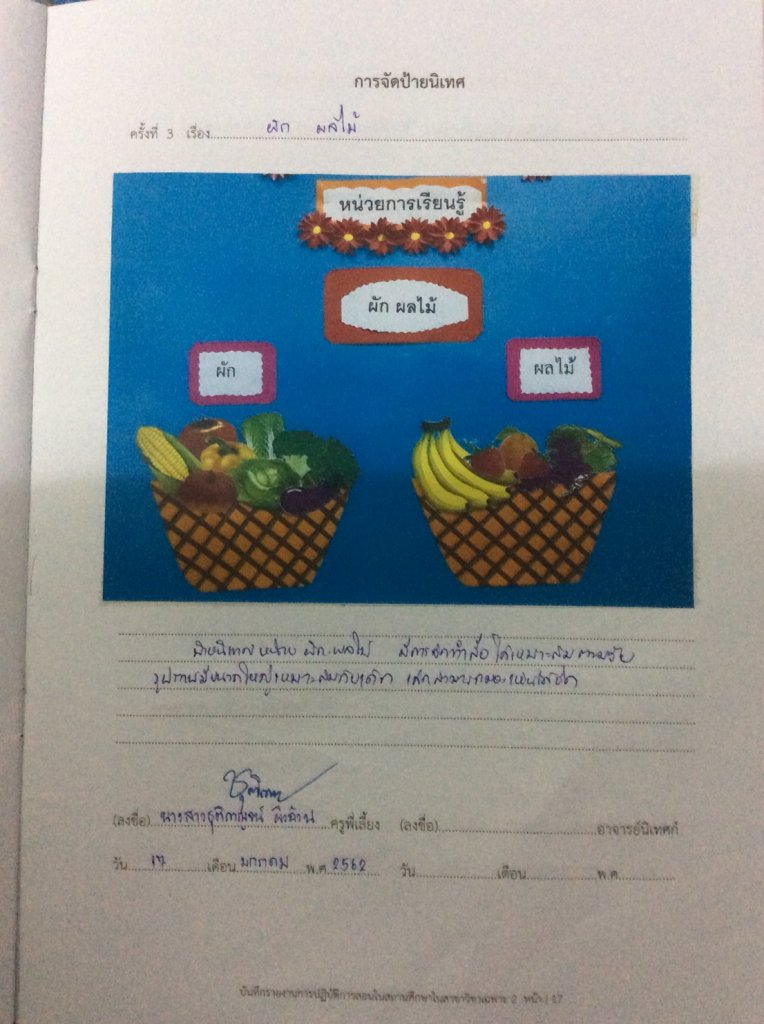 การจัดป้ายนิเทศ
ครั้งที่ 3 เรื่อง ผัก ผลไม้
หน่วยการเรียนรู้
ผัก ผลไม้
ผัก
ผลไม้
ป้ายนิเทศ หน่วย ผัก ผลไม้ มีการจัดทำสื่อ ได้เหมาะสม ตามวัย
รูปภาพมีขนาดใหญ่เหมาะสมกับเด็ก เด็กสามารถมองเห็นได้
(ลงชื่อ) นางสาว ครูพี่เลี้ยง (ลงชื่อ) อาจารย์นิเทศก์
วัน 17 เดือน มกราคม พ.ศ 2562 วัน เดือน พ.ศ.
บันทึกรายงานการปฏิบัติการสอนในสถานศึกษาในสาขาวิชาเฉพาะ 2 หน้า | 17